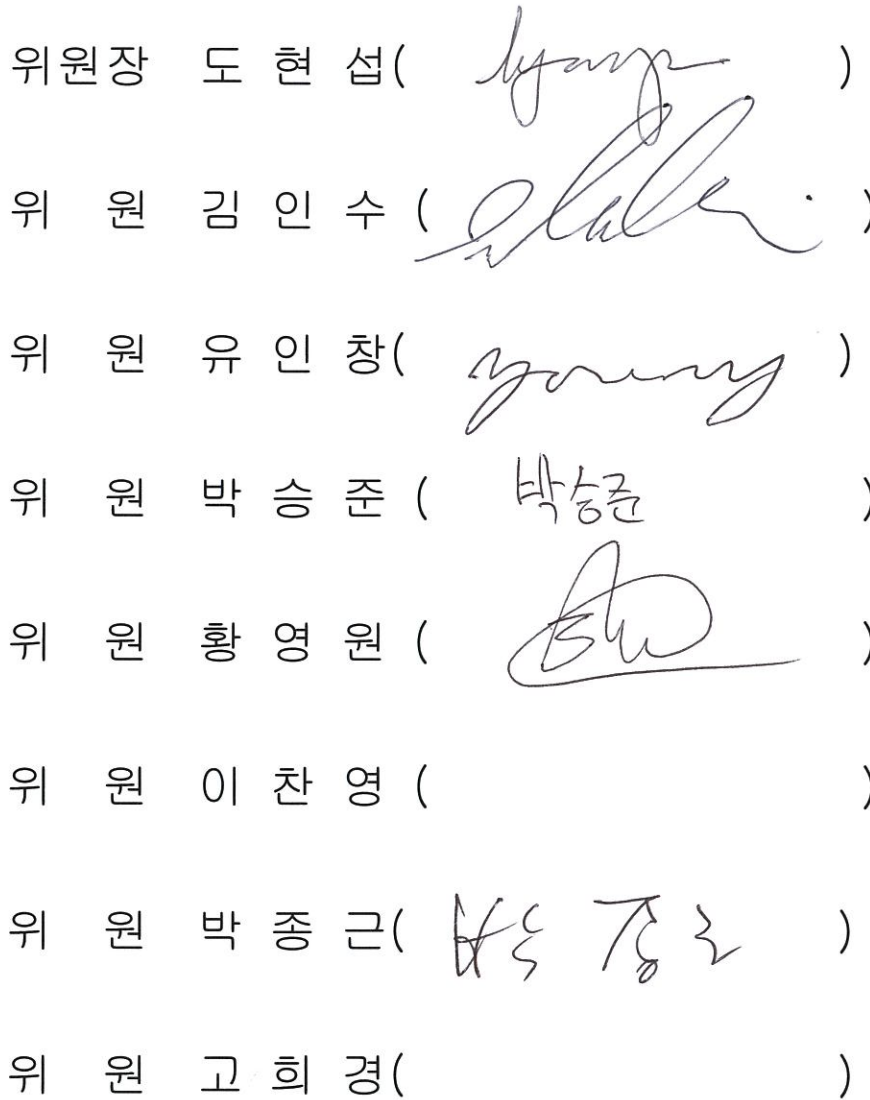 위원장 도 현 섭( )
위 원 김 인 수 ( )
위 원 유 인 창( )
위 원 박 승 준 ( 박승준 )
위 원 황 영 원 ( )
위 원 이 찬 영 ( )
위 원 박 종 근( 박종근 )
위 원 고 희 경( )